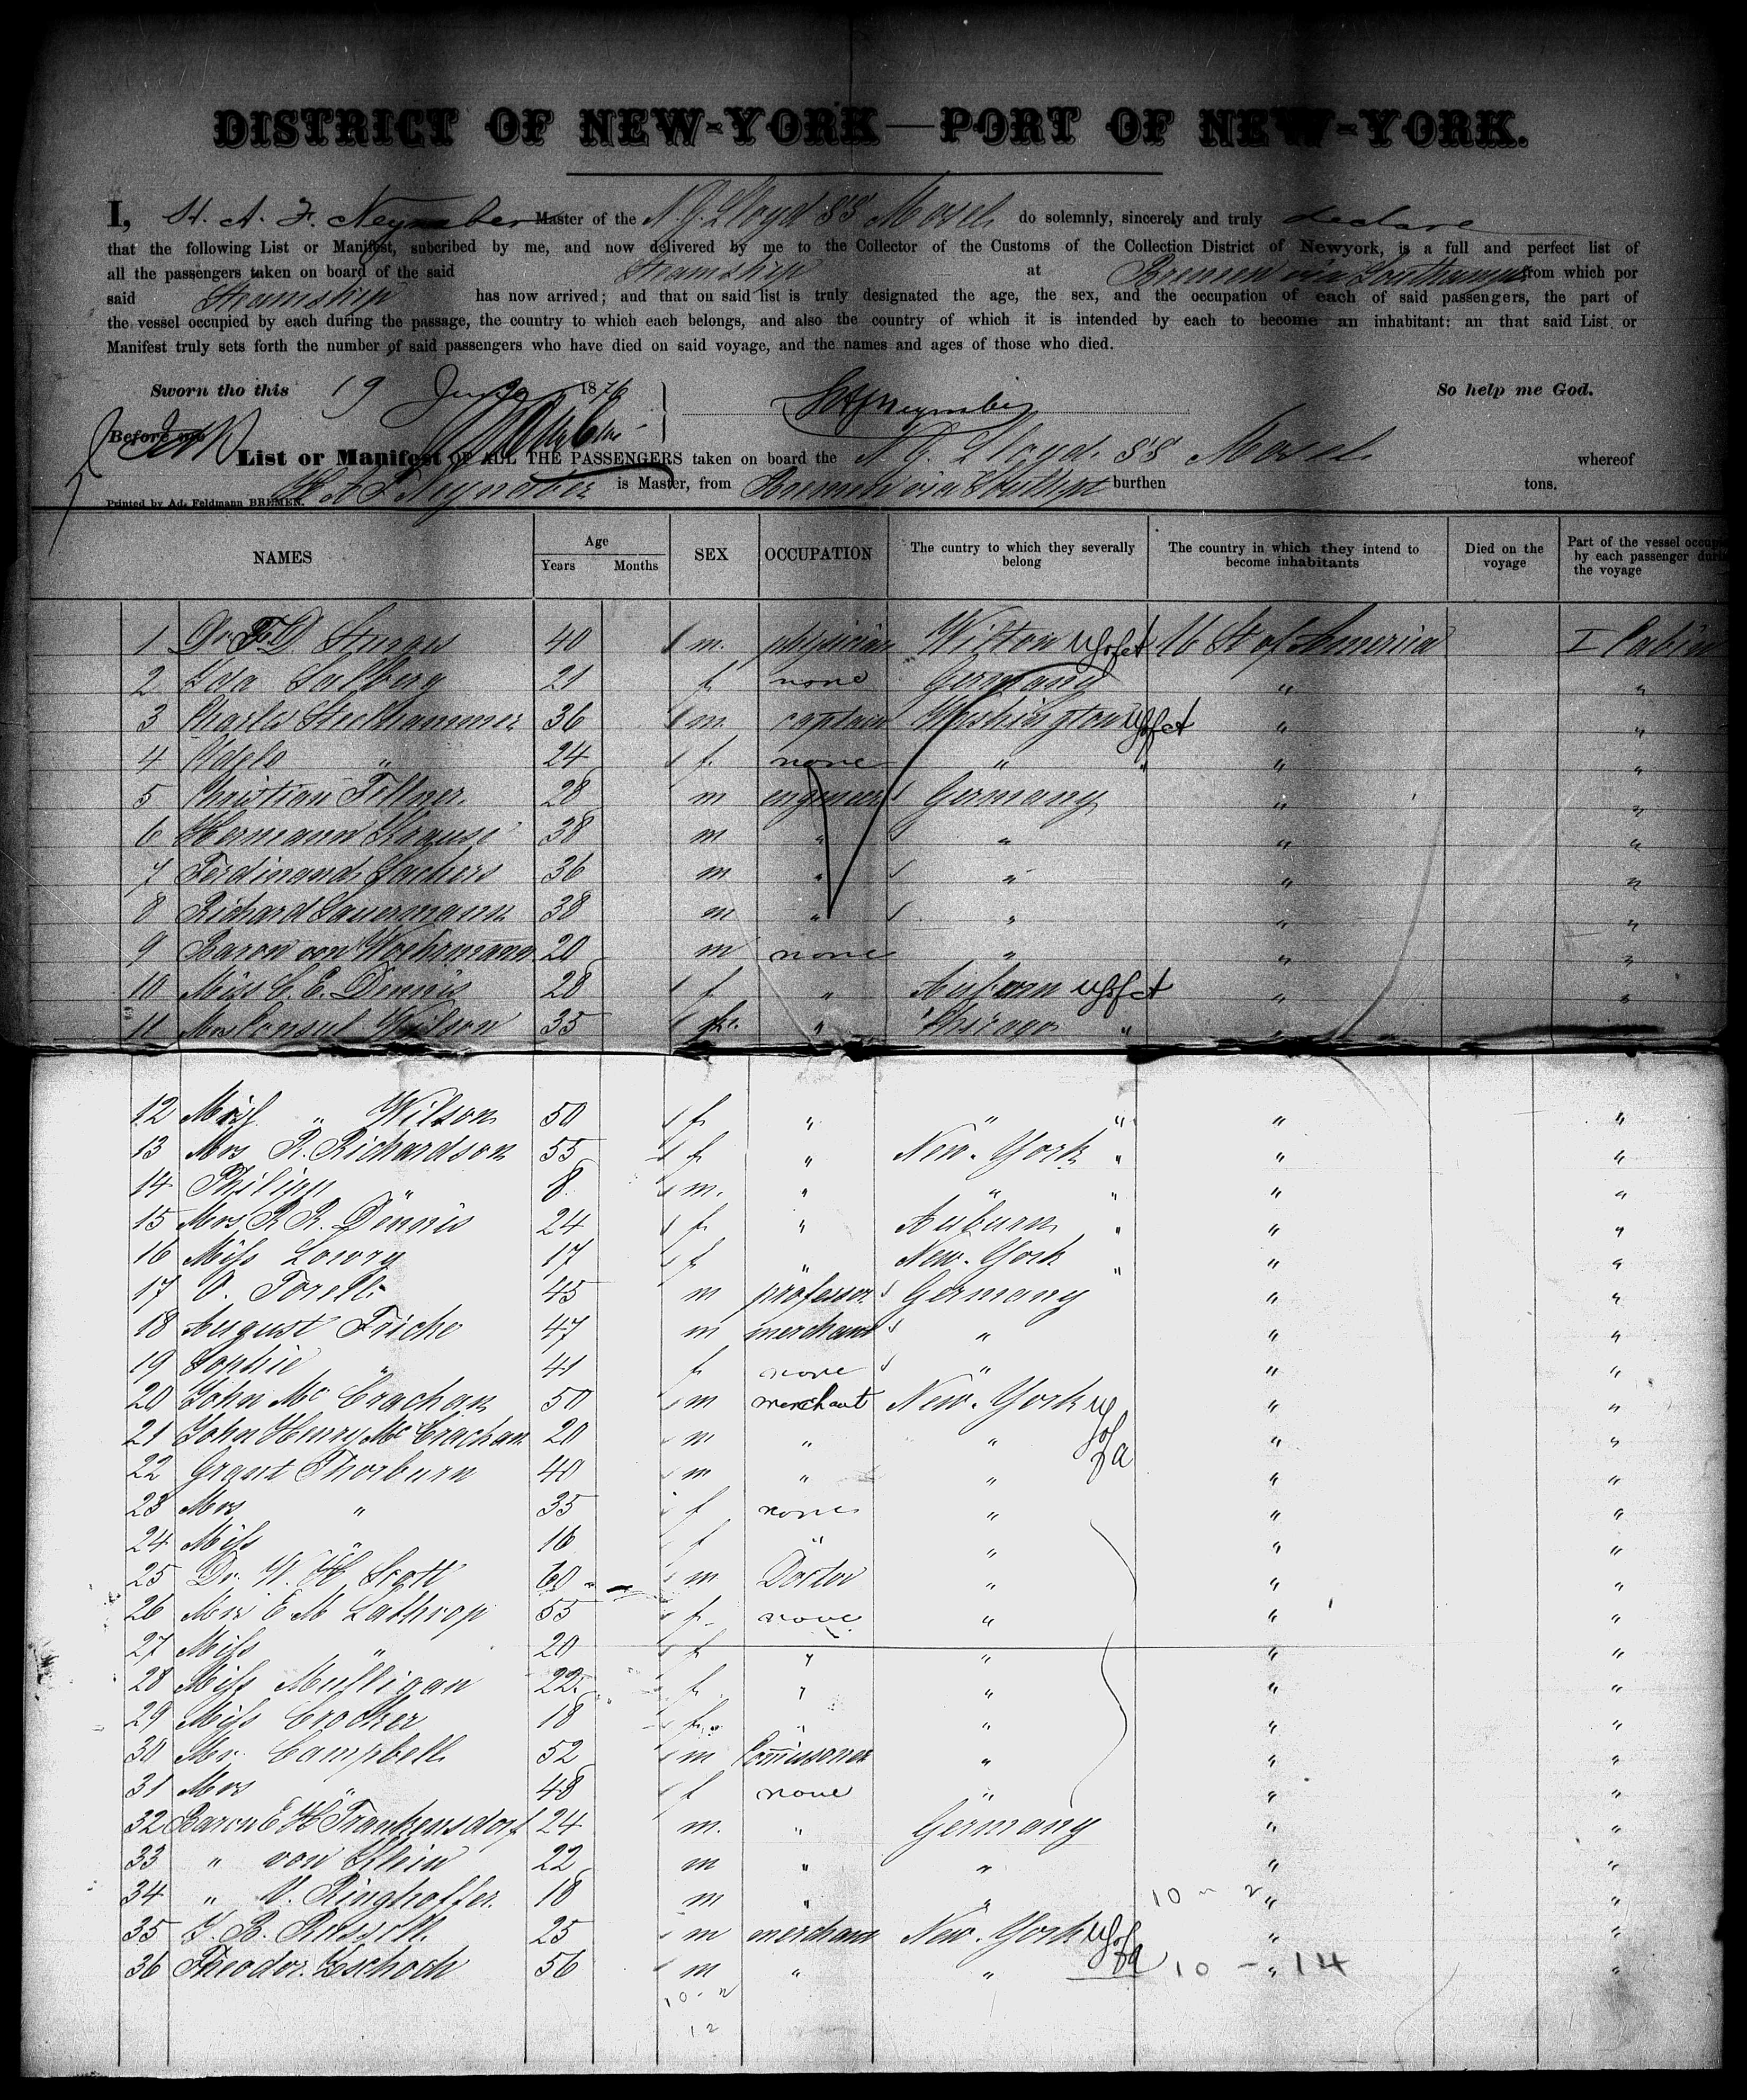 DISTRICT OF NEW-YORK—PORT OF NEW-YORK.
I, H. A. F. Neynaber Master of the N. G. Lloyd SS Mosel do solemnly, sincerely and truly declare
that the following List or Manifest, subcribed by me, and now delivered by me to the Collector of the Customs of the Collection District of Newyork, is a full and perfect list of
all the passengers taken on board of the said Steamship at Bremen via Southampt from which por
said Steamship has now arrived; and that on said list is truly designated the age, the sex, and the occupation of each of said passengers, the part of
the vessel occupied by each during the passage, the country to which each belongs, and also the country of which it is intended by each to become an inhabitant: an that said List or
Manifest truly sets forth the number of said passengers who have died on said voyage, and the names and ages of those who died.
Sworn tho this 19 June 1876 So help me God.
Before me
List or Manifest OF ALL THE PASSENGERS taken on board the N. G. Lloyd SS Mosel whereof
H A F Neynaber is Master, from Bremen via burthen tons.
Printed by Ad. Feldmann BREMEN.
NAMES Age Years Months SEX OCCUPATION The cuntry to which they severally belong The country in which they intend to become inhabitants Died on the voyage Part of the vessel occupi by each passenger duri the voyage
1 Dr. F. D. Sturges 40 m. physician Wilton US of A US St of America I Cabin
2 Ida Salberg 21 f. none Germany " "
3 Charles Steelhammer 36 m. captain Washington US of A " "
4 Adele " 24 f. none " " " "
5 Christian Fellner 28 m engineer Germany " "
6 Hermann Krause 38 m " " " "
7 Ferdinand Sachers 36 m " " " "
8 Richard Sauermann 38 m " " " "
9 Baron von Woehrmann 20 m none " " "
10 Miss C. E. Dennis 28 f " Auburn US of A " "
11 Mrs Consul Wilson 35 f. " Chicago " " "
12 Miss " Wilson 50 f. " " " " "
13 Mrs R. Richardson 55 f. " New-York " " "
14 Philipp " 8 m. " " " " "
15 Mrs R. R. Dennis 24 f. " Auburn " " "
16 Miss Lowry 17 f " New-York " " "
17 O. Torell 45 m professor Germany " "
18 August Fricke 47 m merchant " " "
19 Sophie " 41 f. none " " "
20 John Mc Crachan 50 m merchant New-York US of A " "
21 John Henry Mc Crachan 20 m " " " "
22 Grant Thorburn 40 m " " " "
23 Mrs " 35 f none " " "
24 Miss " 16 f " " " "
25 Dr. W. H Scott 60 m Doctor " " "
26 Mrs E M Lathrop 55 f. none " " "
27 Miss " 20 f " " " "
28 Miss Mulligan 22 f. " " " "
29 Miss Crocker 18 f. " " " "
30 Mr. Campbell 52 m Comissoner " " "
31 Mrs " 48 f none " " "
32 Baron E H Frankensdorf 24 m. " Germany " "
33 " von Klein 22 m " " " "
34 " V. Ringhoffer 18 m " " 10 - 2 " "
35 J. B. Russell 25 m merchant New-York US of A " "
36 Theodor. Zschoch 56 m " " 10 - 14 " "
10 - 2
12